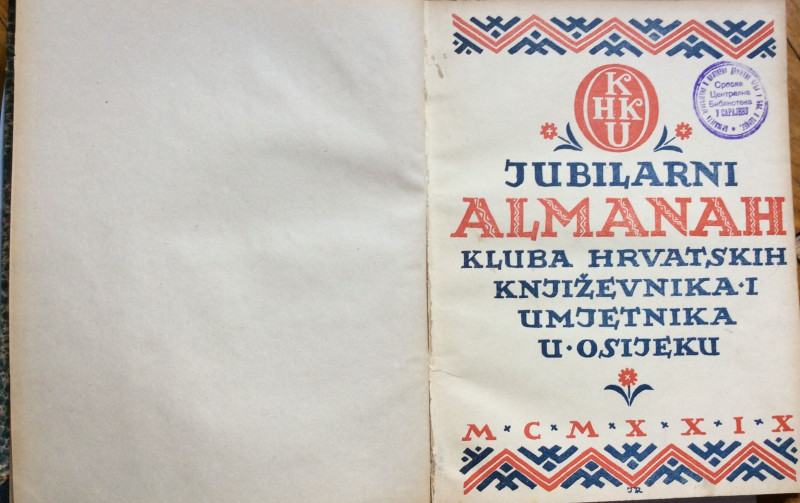 K
HK
U
Српска
Централна
Библиотека
У САРАЈЕВУ
JUBILARNI
ALMANAH
KLUBA HRVATSKIH
KNJIŽEVNIKA·I
UMJETNIKA
U·OSIJEKU
M·C·M·X·X·I·X